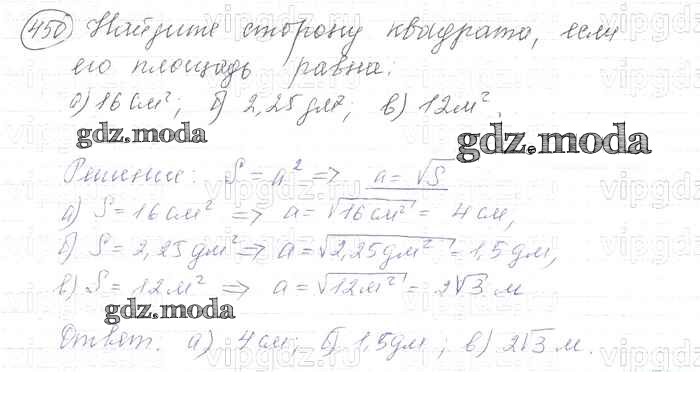 450 Найдите сторону квадрата, если
его площадь равна:
а) 16 см²; б) 2,25 дм²; в) 12 м².
gdz.moda
gdz.moda
Решение: S = a² => a = √S
а) S = 16 см² => a = √16 см² = 4 см,
б) S = 2,25 дм² => a = √2,25 дм² = 1,5 дм,
в) S = 12 м² => a = √12 м² = 2√3 м
gdz.moda
Ответ: а) 4 см; б) 1,5 дм; в) 2√3 м.